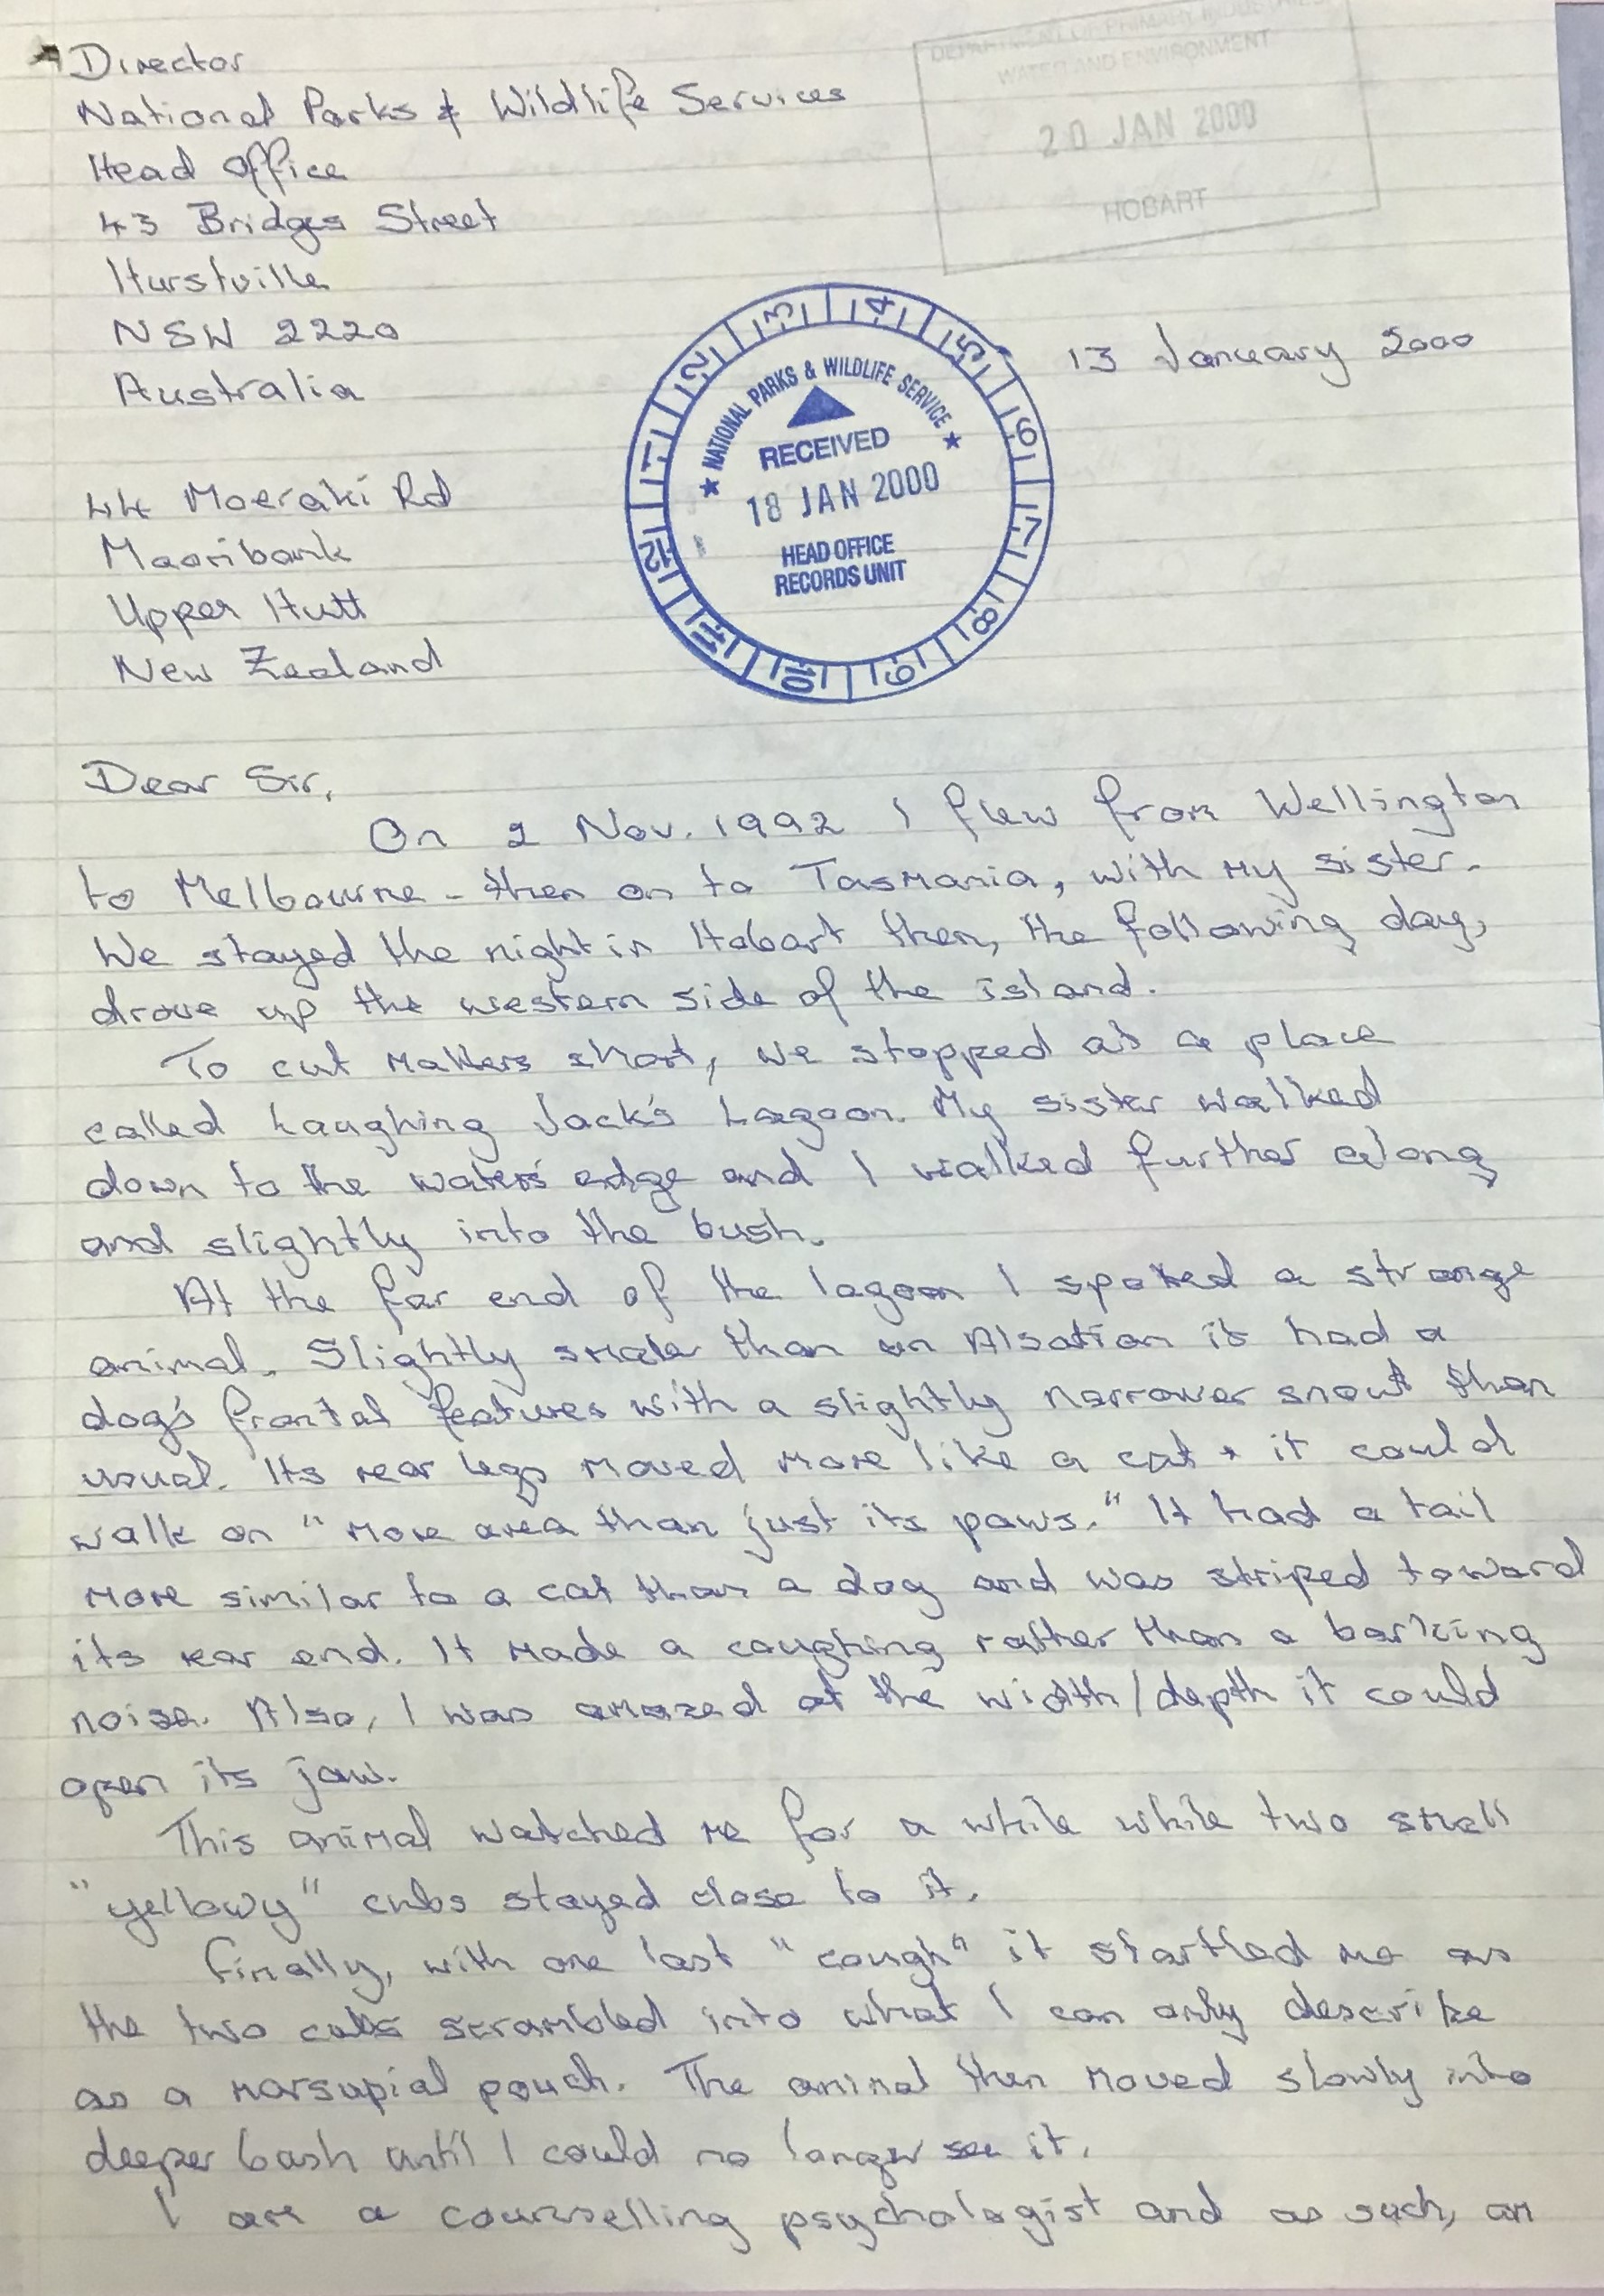 Director
National Parks & Wildlife Services
Head Office
43 Bridges Street
Hurstville
NSW 2220
Australia
DEPARTMENT OF PRIMARY INDUSTRIES
WATER AND ENVIRONMENT
20 JAN 2000
HOBART
13 January 2000
1 2 3 4 5 6 7 8 9 10 11 12
★ NATIONAL PARKS & WILDLIFE SERVICE ★
RECEIVED
18 JAN 2000
HEAD OFFICE
RECORDS UNIT
44 Moeraki Rd
Maoribank
Upper Hutt
New Zealand
Dear Sir,
On 2 Nov. 1992 I flew from Wellington
to Melbourne - then on to Tasmania, with my sister.
We stayed the night in Hobart then, the following day,
drove up the western side of the island.
To cut matters short, we stopped at a place
called Laughing Jack's Lagoon. My sister walked
down to the water's edge and I walked further along
and slightly into the bush.
At the far end of the lagoon I spotted a strange
animal. Slightly smaller than an Alsation it had a
dog's frontal features with a slightly narrower snout than
usual. Its rear legs moved more like a cat + it could
walk on "more area than just its paws." It had a tail
more similar to a cat than a dog and was striped toward
its rear end. It made a coughing rather than a barking
noise. Also, I was amazed at the width/depth it could
open its jaw.
This animal watched me for a while while two small
"yellowy" cubs stayed close to it.
Finally, with one last "cough" it startled me as
the two cubs scrambled into what I can only describe
as a marsupial pouch. The animal then moved slowly into
deeper bush until I could no longer see it.
I am a counselling psychologist and as such, an